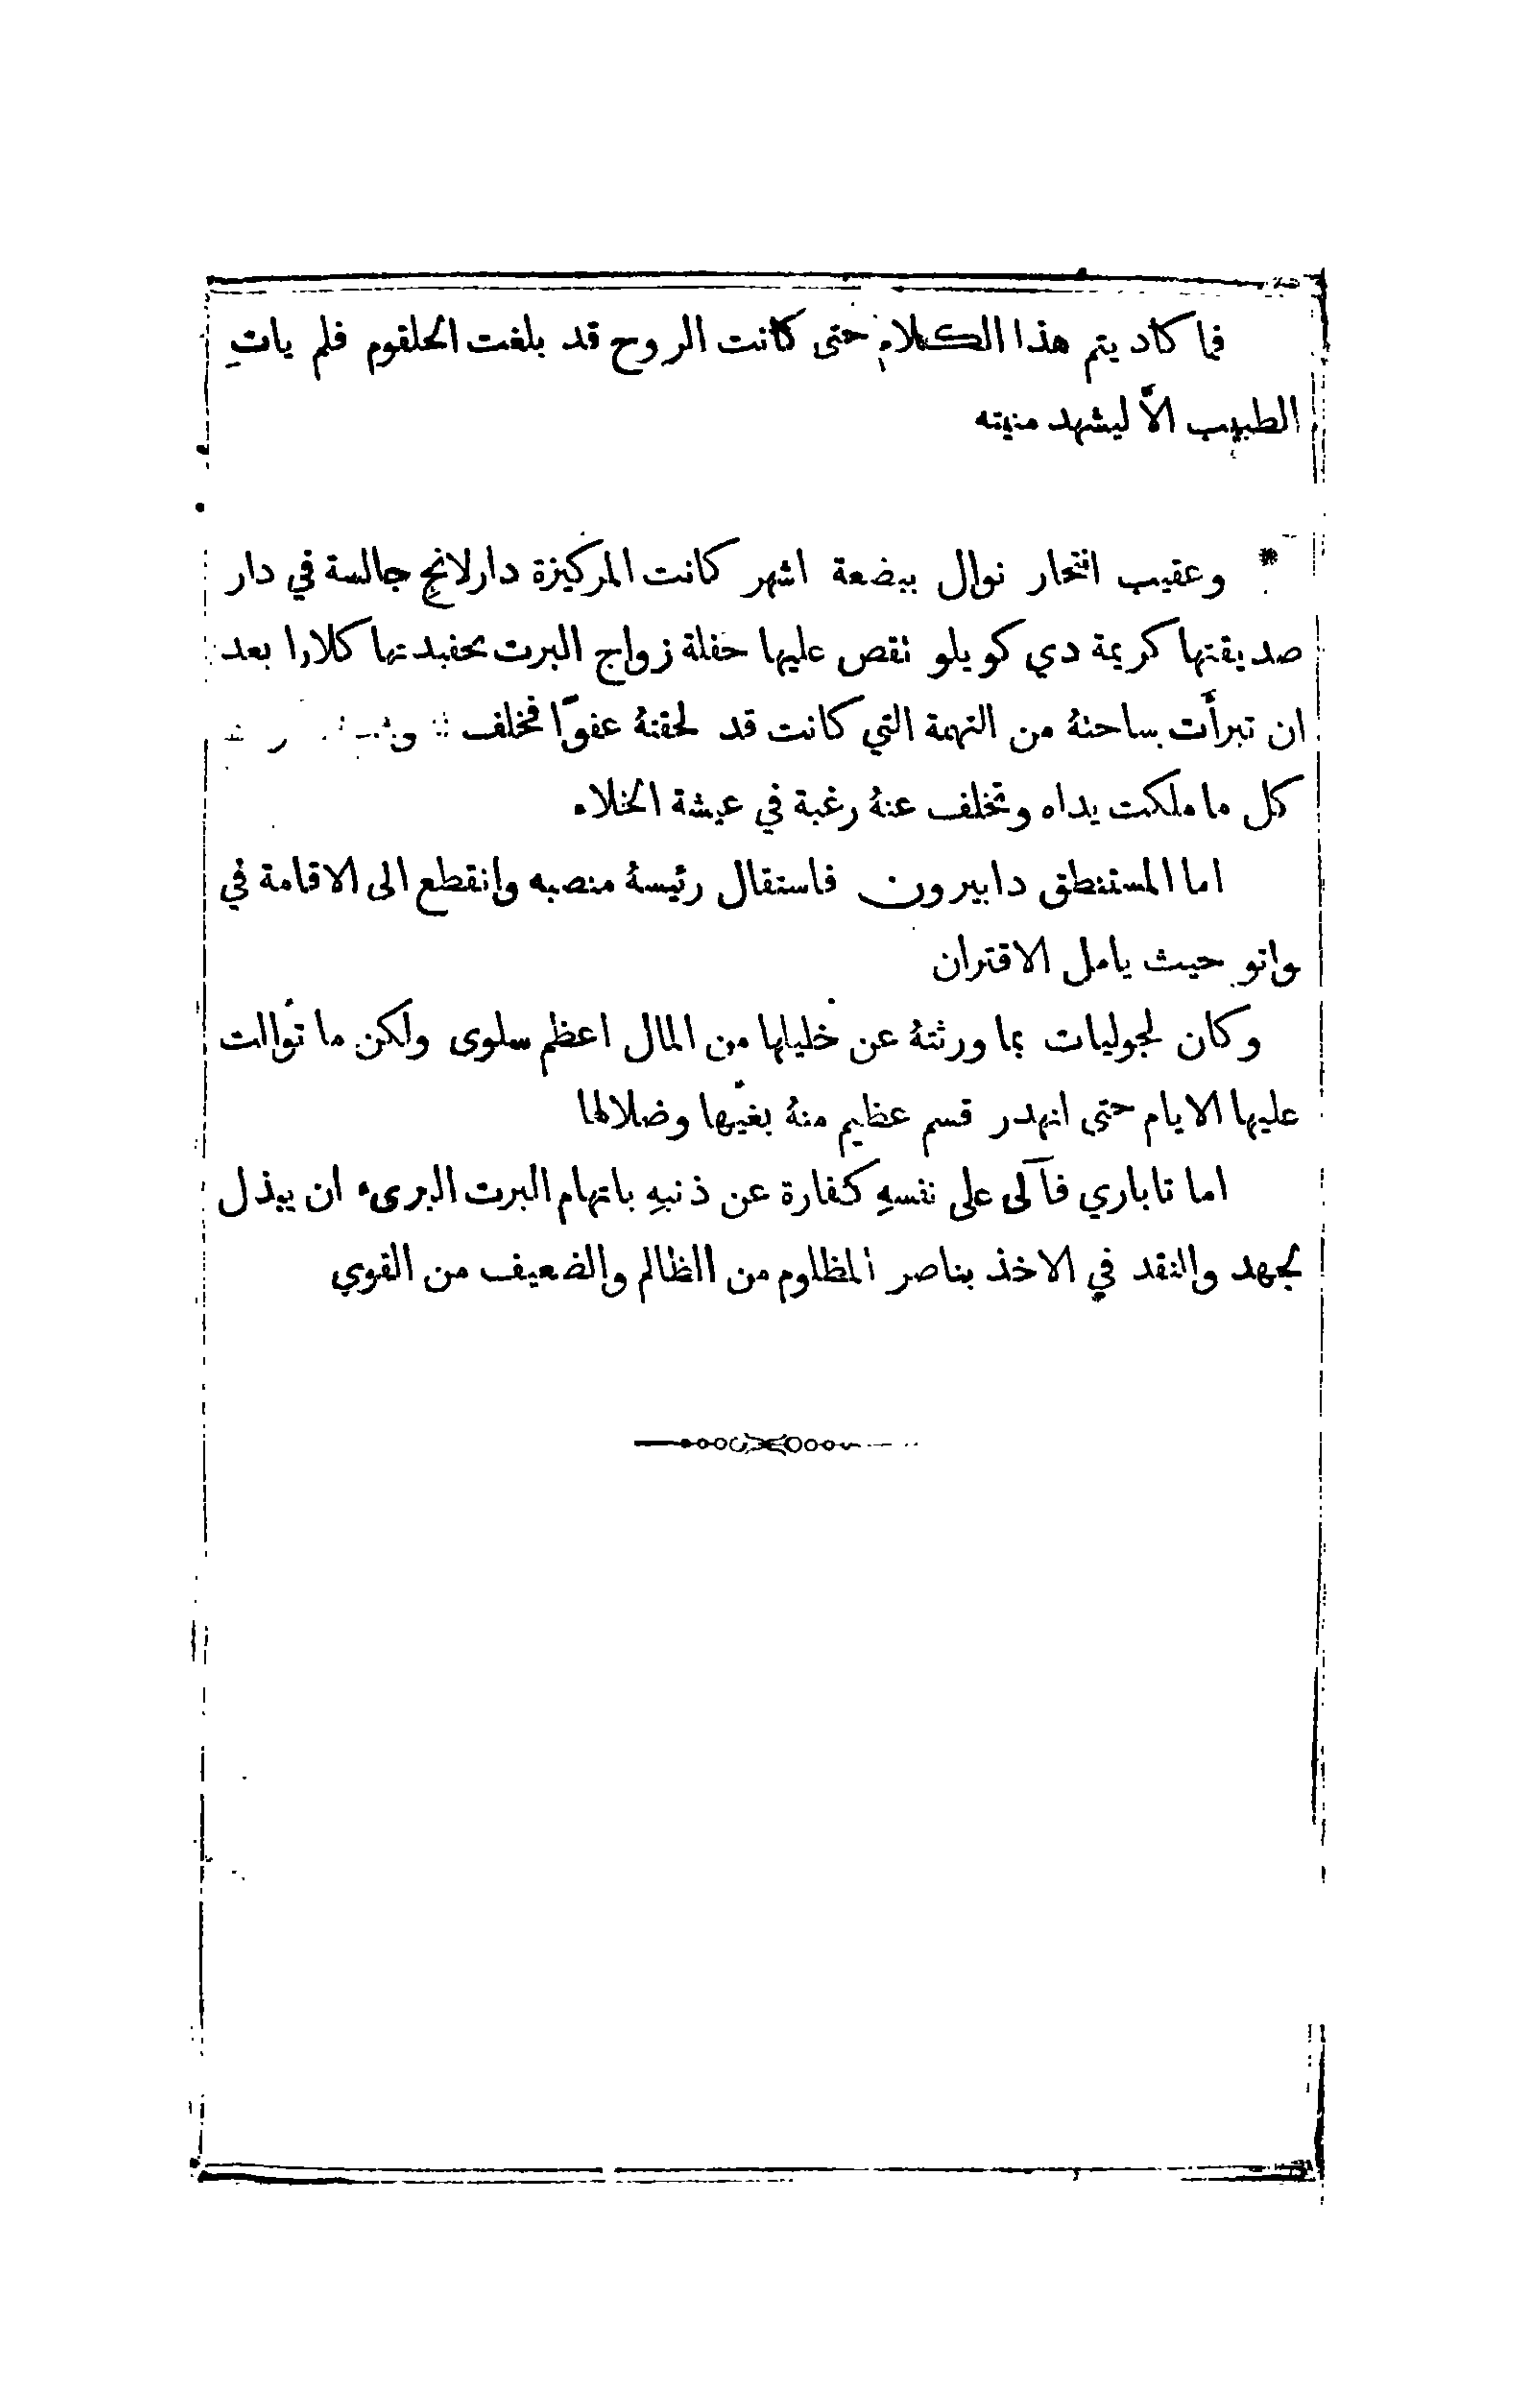 فما كاد يتم هذا الكلام حتى كانت الروح قد بلغت الحلقوم فلم يأتِ
الطبيب الاَّ ليشهد منيته
* وعقيب انتحار نوال ببضعة اشهر كانت المركيزة دارلانج جالسة في دار
صديقتها كريمة دي كويلو تقص عليها حفلة زواج البرت بحفيدتها كلارا بعد
ان تبرأَت ساحتهُ من التهمة التي كانت قد لحقتهُ عفوًا فخلف
كل ما ملكت يداه وتخلف عنهُ رغبة في عيشة الخلاء
اما المستنطق دابيرون فاستقال رئيسهُ منصبه وانقطع الى الاقامة في
واتو حيث يامل الاقتران
وكان لجوليات بما ورثتهُ عن خليلها من المال اعظم سلوى ولكن ما توالت
عليها الايام حتى انهدر قسم عظيم منهُ بغيّها وضلالها
اما تاباري فآلى على نفسهِ كفارة عن ذنبهِ باتهام البرت البرىء ان يبذل
لجهد والنقد في الاخذ بناصر المظلوم من الظالم والضعيف من القوي